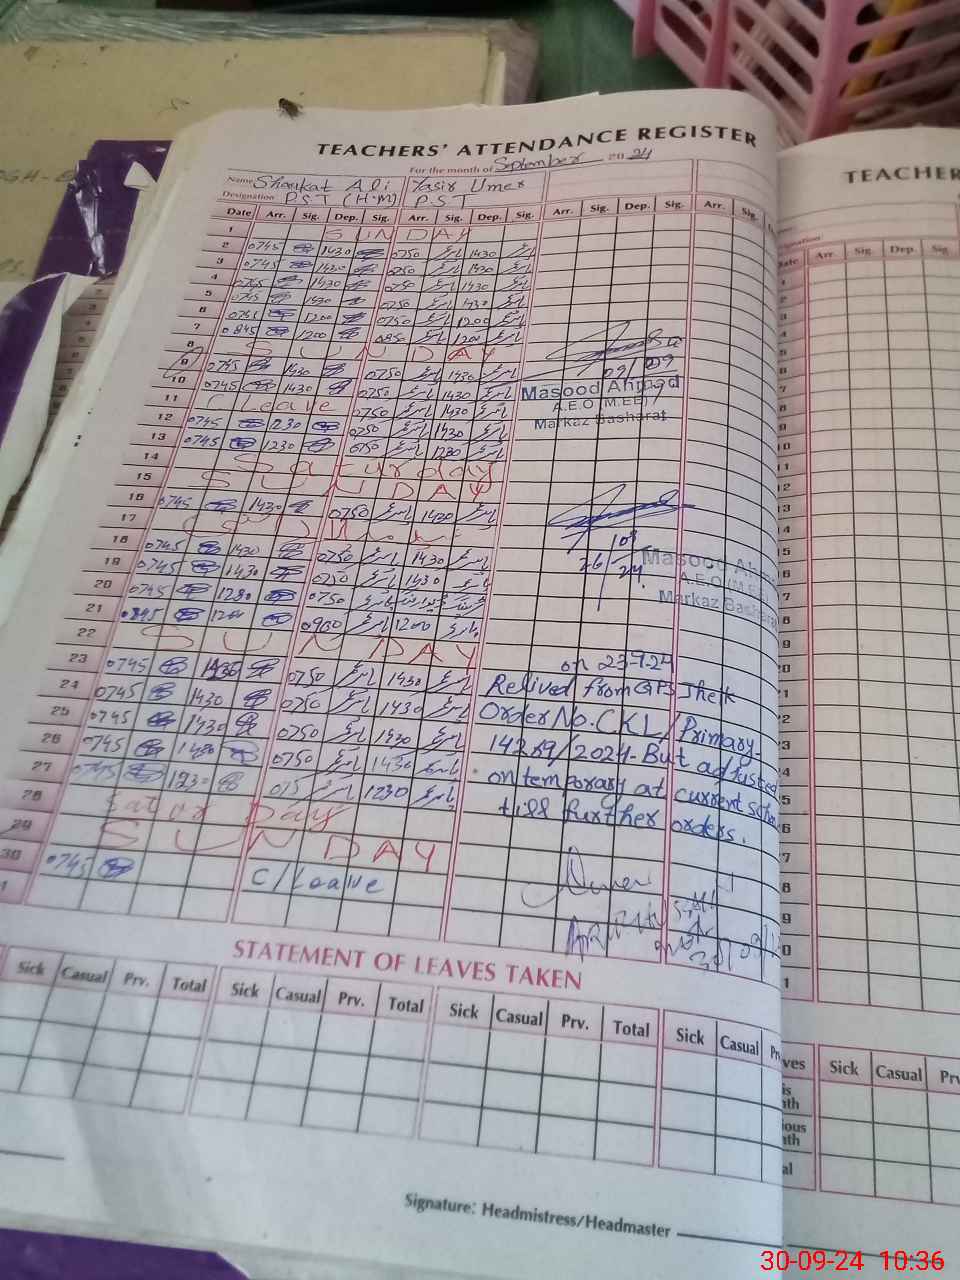 TEACHERS' ATTENDANCE REGISTER
For the month of September 2024
Name Shaukat Ali Yasir Umer
Designation P.S.T (H.M) P.S.T
Date Arr. Sig. Dep. Sig. Arr. Sig. Dep. Sig. Arr. Sig. Dep. Sig. Arr. Sig.
1 SUNDAY
2 0745 1430 0750 1430
3 0745 1430 0750 1430
4 0745 1430 0750 1430
5 0745 1430 0750 1430
6 0745 1200 0750 1200
7 0845 1200 0850 1200
8 SUNDAY
9 0745 1430 0750 1430
10 0745 1430 0750 1430
11 C/Leave 0750 1430
12 0745 1230 0750 1430
13 0745 1230 0750 1230
14 Saturday
15 SUNDAY
16 0745 1430 0750 1430
17
18 0745 1430 0750 1430
19 0745 1430 0750 1430
20 0745 1230 0750
21 0845 1200 0900 1200
22 SUNDAY
23 0745 1430 0750 1430
24 0745 1430 0750 1430
25 0745 1430 0750 1430
26 0745 1430 0750 1430
27 0745 1230 075 1230
28 Saturday
29 SUNDAY
30 0745 C/Leave
1
09
Masood Ahmad
A.E.O (M.EE)
Markaz Basharat
26/09
24.
Masood Ahm
A.E.O (M.EE)
Markaz Basharat
on 23-9-24
Relived from GPS Jhek
Order No. CKL/Primary-
14289/2024-But adjusted
on temporary at current scho
till further orders.
STATEMENT OF LEAVES TAKEN
Sick Casual Prv. Total Sick Casual Prv. Total Sick Casual Prv. Total Sick Casual Pr
Signature: Headmistress/Headmaster
TEACHER
Date Arr. Sig. Dep. Sig.
Sick Casual Prv
30-09-24 10:36